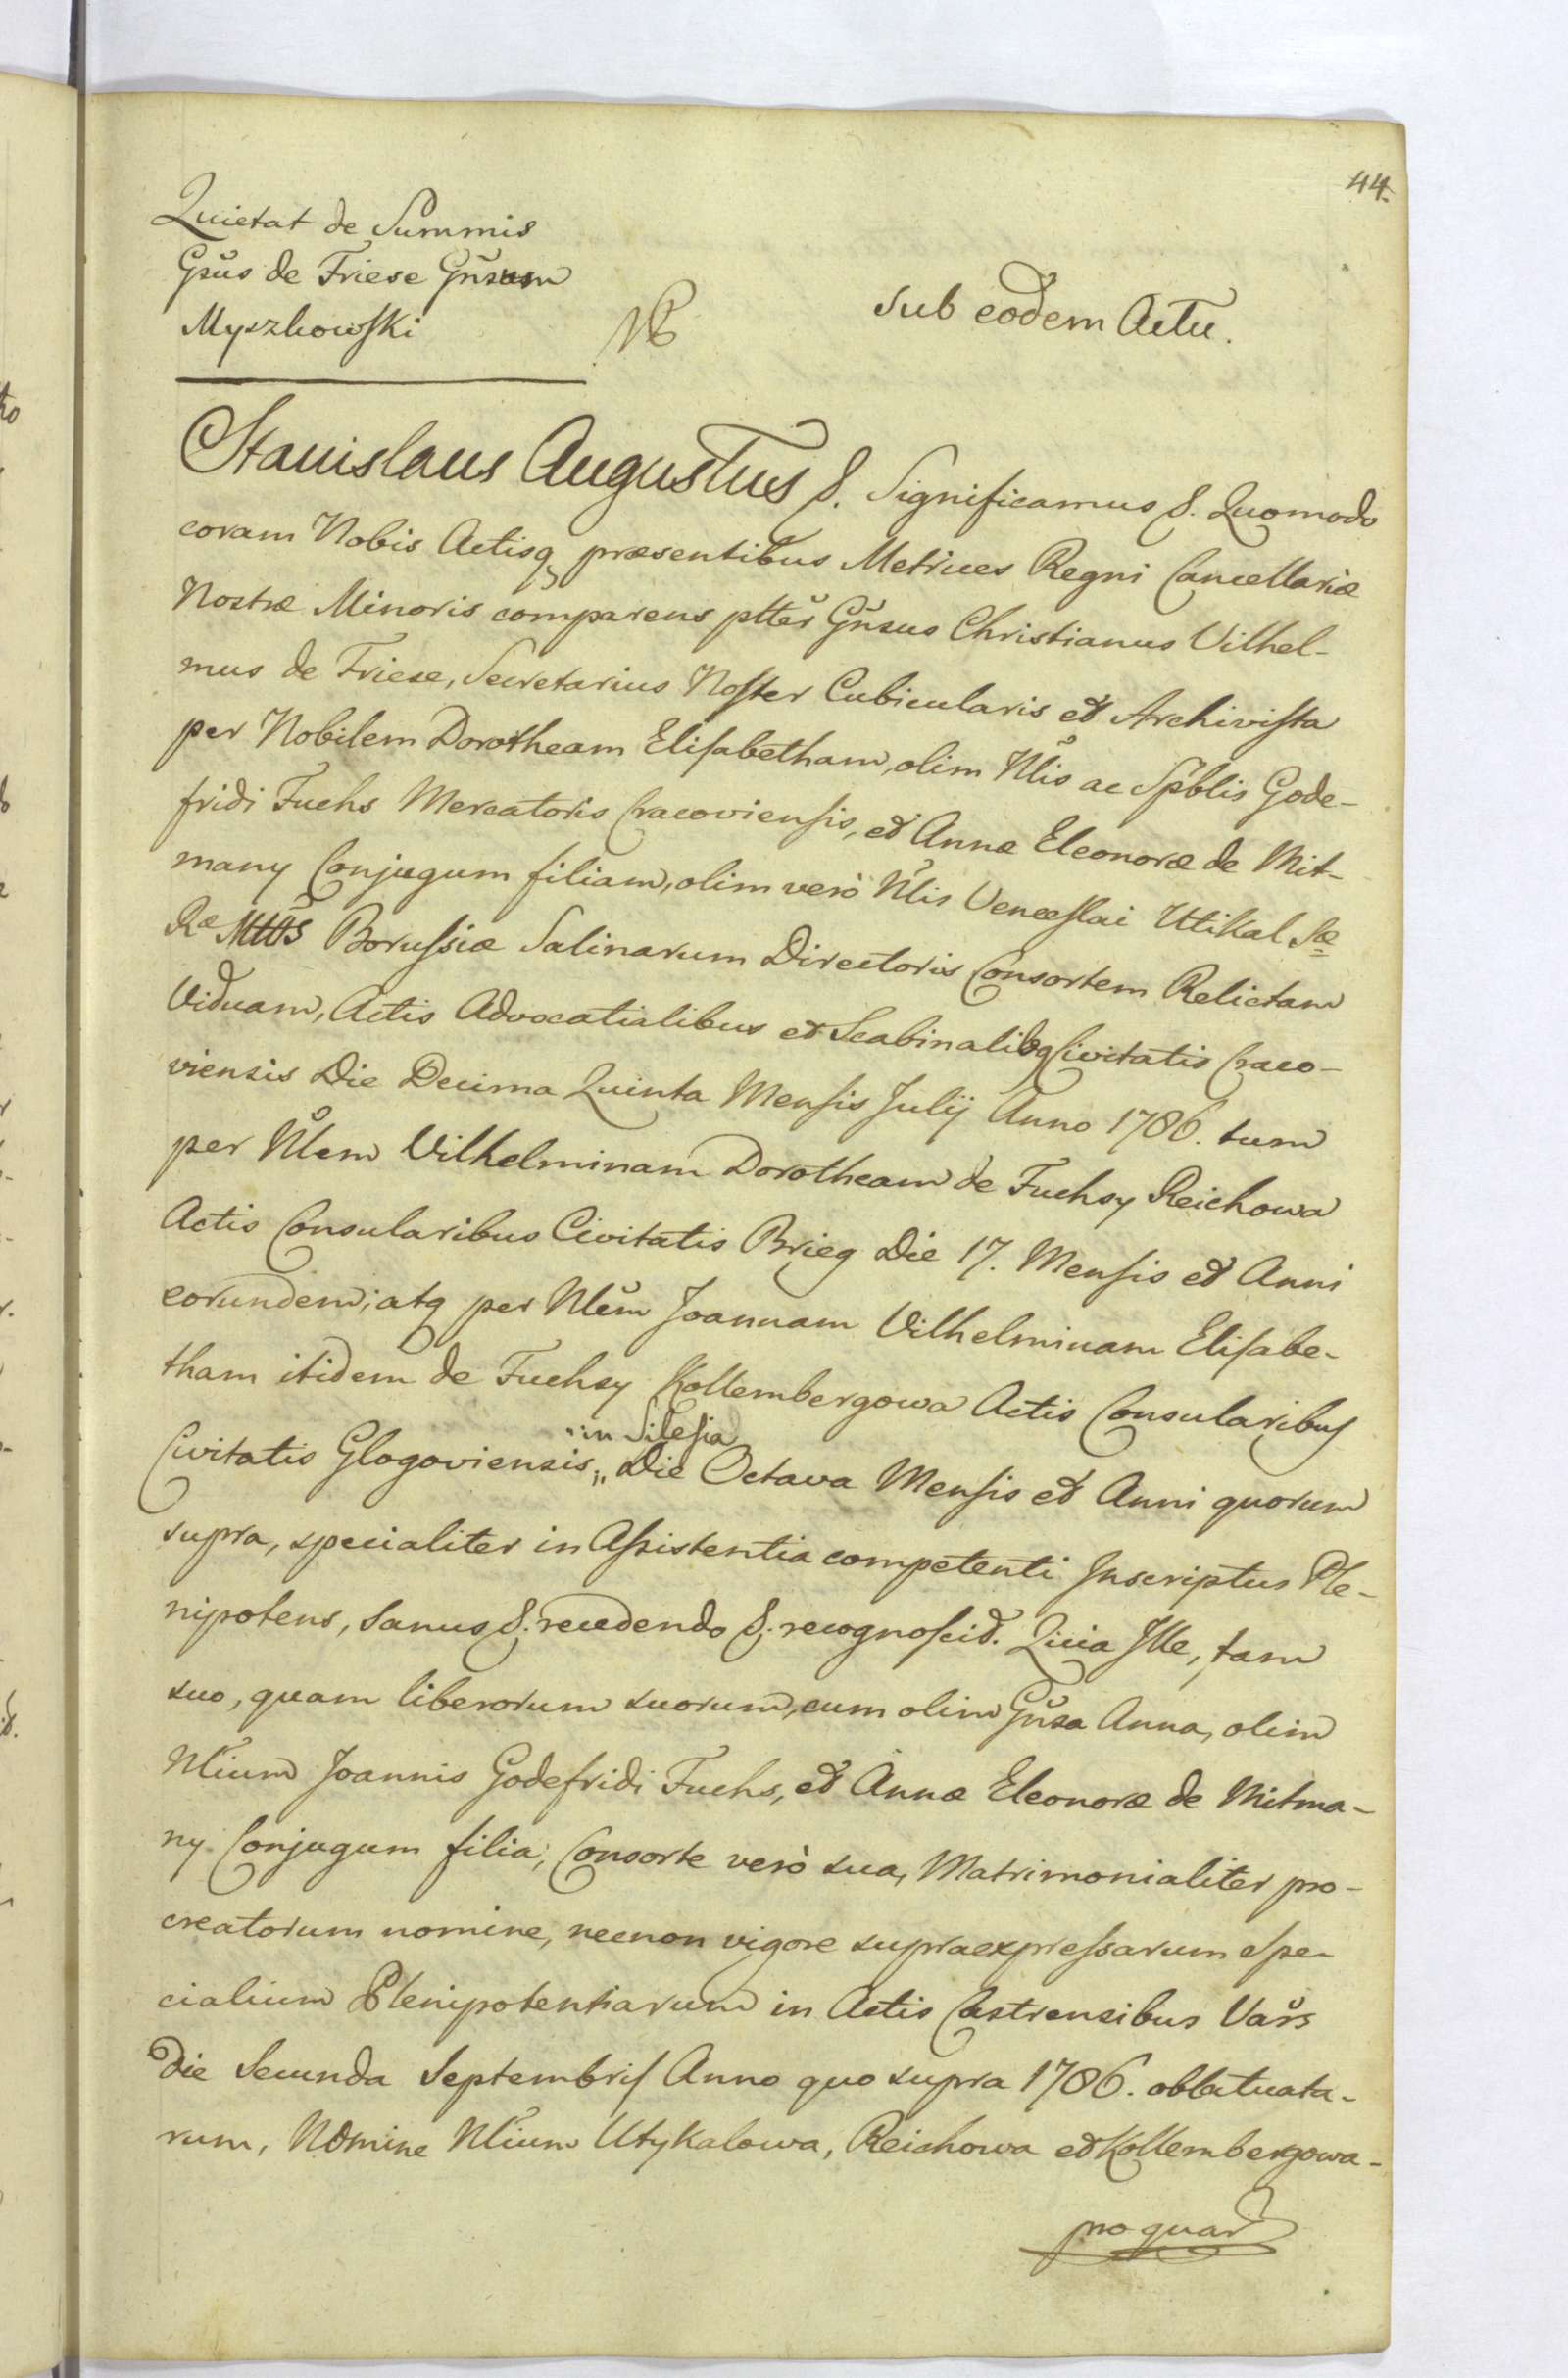 44.
Quietat de Summis
Gsũs de Friese Gñsum
Myszkowski
NB
sub eodem Actu.
Stanislaus Augustus &. Significamus &. Quomodo
coram Nobis Actisq præsentibus Metrices Regni Cancellariæ
Nostræ Minoris comparens pttěr Gñsus Christianus Vilhel-
mus de Friese, Secretarius Noster Cubicularis et Archivista
per Nobilem Dorotheam Elisabetham, olim Nlis ac Spblis Gode-
fridi Fuchs Mercatoris Cracoviensis, et Annæ Eleonoræ de Mit-
many Conjugum filiam, olim verò Nlis Venceslai Utikal Sæ
Ræ Mttis Borussiæ Salinarum Directoris Consortem Relictam
Viduam, Actis Advocatialibus et Scabinalibq Civitatis Craco-
viensis Die Decima Quinta Mensis Julij Anno 1786. tum
per Nlem Vilhelminam Dorotheam de Fuchsy Reichowa
Actis Consularibus Civitatis Brieg Die 17. Mensis et Anni
eorundem; atq per Nlem Joannam Vilhelminam Elisabe-
tham itidem de Fuchsy Kollembergowa Actis Consularibus
in Silesia
Civitatis Glogoviensis, Die Octava Mensis et Anni quorum
supra, specialiter in Assistentia competenti Inscriptus Ple-
nipotens, Sanus &. recedendo &. recognoscid. Quia Ille, tam
suo, quam liberorum suorum, cum olim Gñsa Anna, olim
Nlium Joannis Godefridi Fuchs, et Annæ Eleonoræ de Mitma-
ny Conjugum filia, Consorte verò sua, Matrimonialiter pro-
creatorum nomine, necnon vigore supraexpressarum Spe-
cialium Plenipotentiarum in Actis Castrensibus Vars
Die Secunda Septembris Anno quo supra 1786. oblatuata-
rum, Nomine Nlium Utykalowa, Reichowa et Kollembergowa-
pro quar